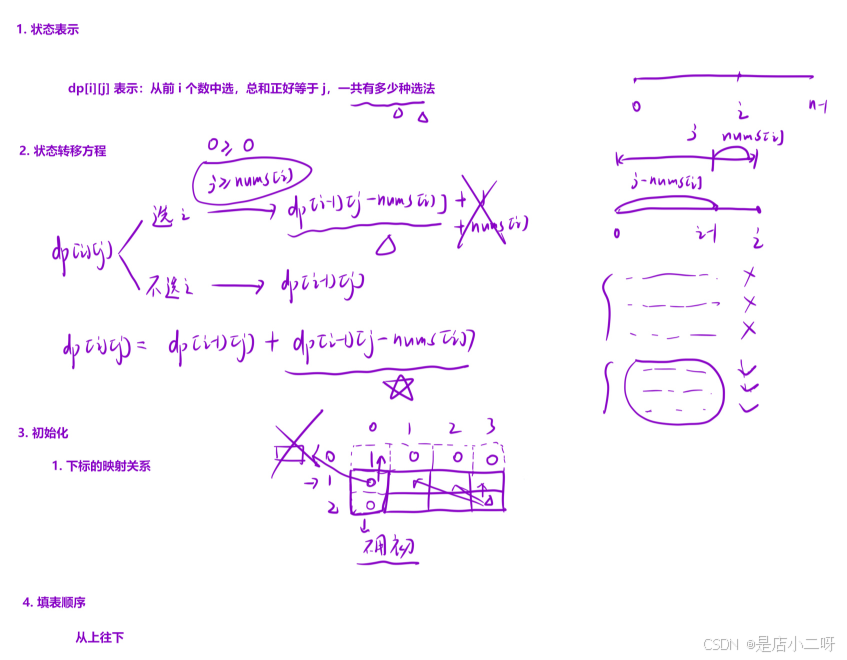 1. 状态表示
dp[i][j] 表示：从前 i 个数中选，总和正好等于 j，一共有多少种选法
0 i n-1
2. 状态转移方程
0 ≥ 0
j ≥ nums[i]
j nums[i]
j-nums[i]
选 i → dp[i-1][j-nums[i]] +
+ nums[i]
0 i-1 i
dp[i][j]
不选 i → dp[i-1][j]
dp[i][j] = dp[i-1][j] + dp[i-1][j-nums[i]]
3. 初始化
0 1 2 3
0 1 0 0 0
1. 下标的映射关系
→ 1 0
2 0
不用初
4. 填表顺序
从上往下
CSDN @是店小二呀